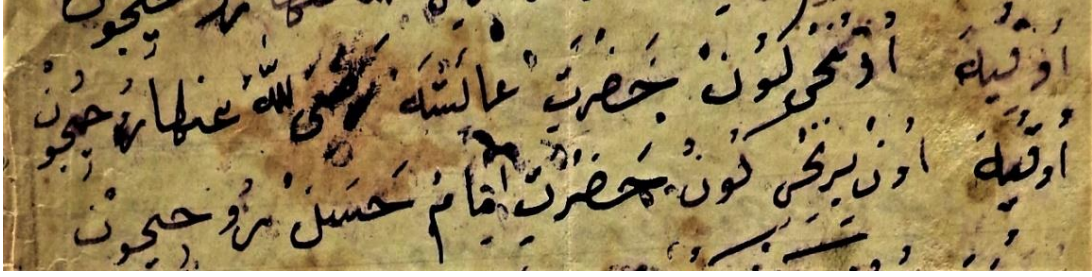 اُوقِيَهْ اُونُنْجِى كُونْ حَضْرَتِ عَايِشَه رَضِىَ اللّٰهُ عَنْهَا رُوحِيچُونْ
اُوقِيَهْ اُونْ بِرِنْجِى كُونْ حَضْرَتِ اِمَامْ حَسَنْ رُوحِيچُونْ